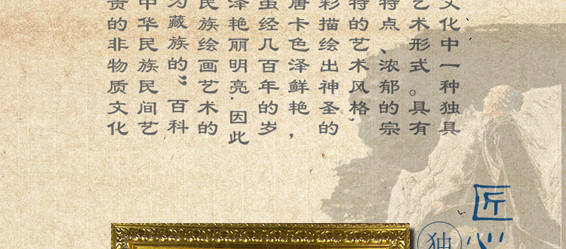 文化中一种独具
艺术形式。具有
特点、浓郁的宗
特的艺术风格
彩描绘出神圣的
唐卡色泽鲜艳，
虽经几百年的岁
泽艳丽明亮.因此
民族绘画艺术的
为藏族的“百科
中华民族民间艺
贵的非物质文化
匠心
独